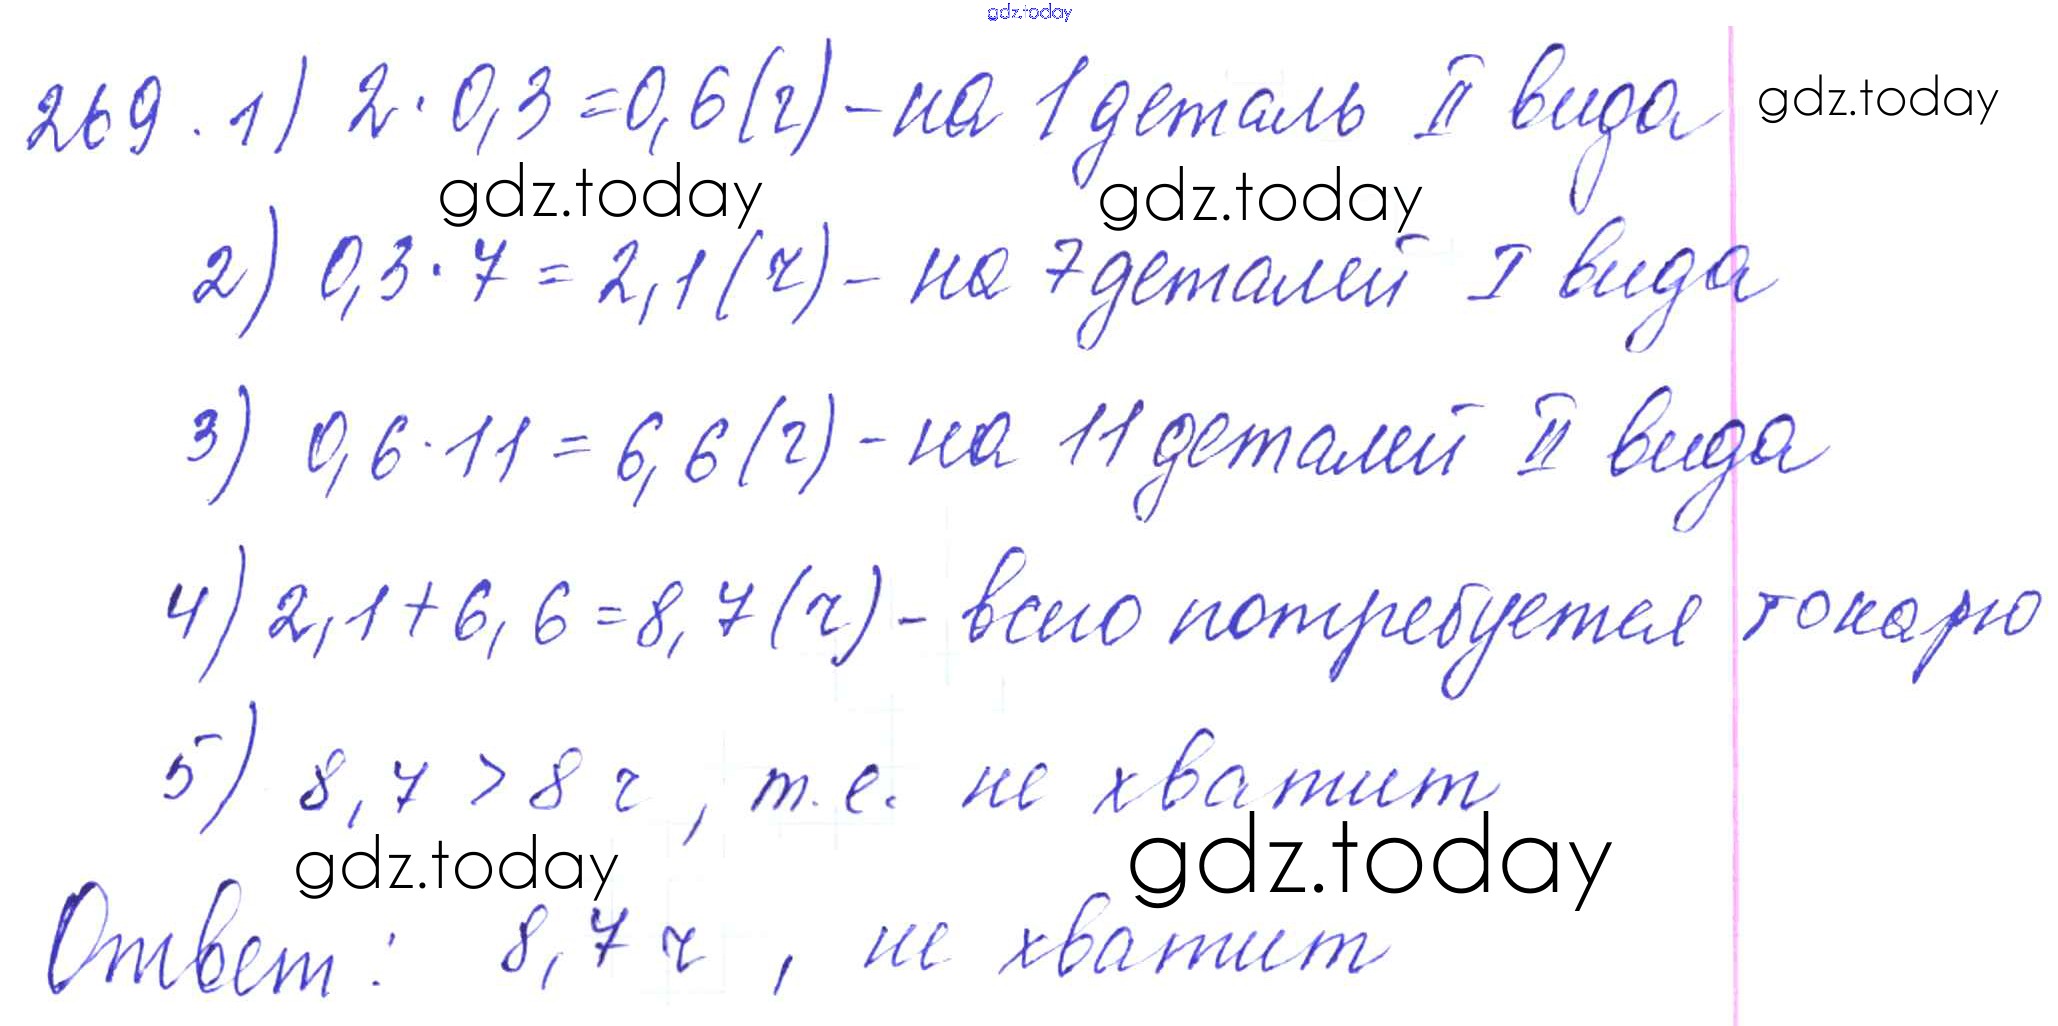 gdz.today
269. 1) 2 · 0,3 = 0,6 (ч) - на 1 деталь II вида gdz.today
gdz.today gdz.today
2) 0,3 · 7 = 2,1 (ч) - на 7 деталей I вида
3) 0,6 · 11 = 6,6 (ч) - на 11 деталей II вида
4) 2,1 + 6,6 = 8,7 (ч) - всего потребуется токарю
5) 8,7 > 8 ч, т.е. не хватит
gdz.today gdz.today
Ответ: 8,7 ч, не хватит